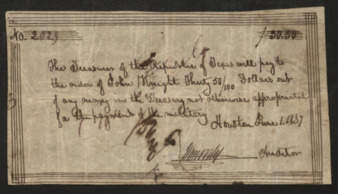 No. 2029 $30.50
The Treasurer of the Republic of Texas will pay to
the order of John Knight Thirty 50/100 Dollars out
of any money in the Treasury not otherwise appropriated
for the payment of the military
Houston June 1, 1837
Auditor